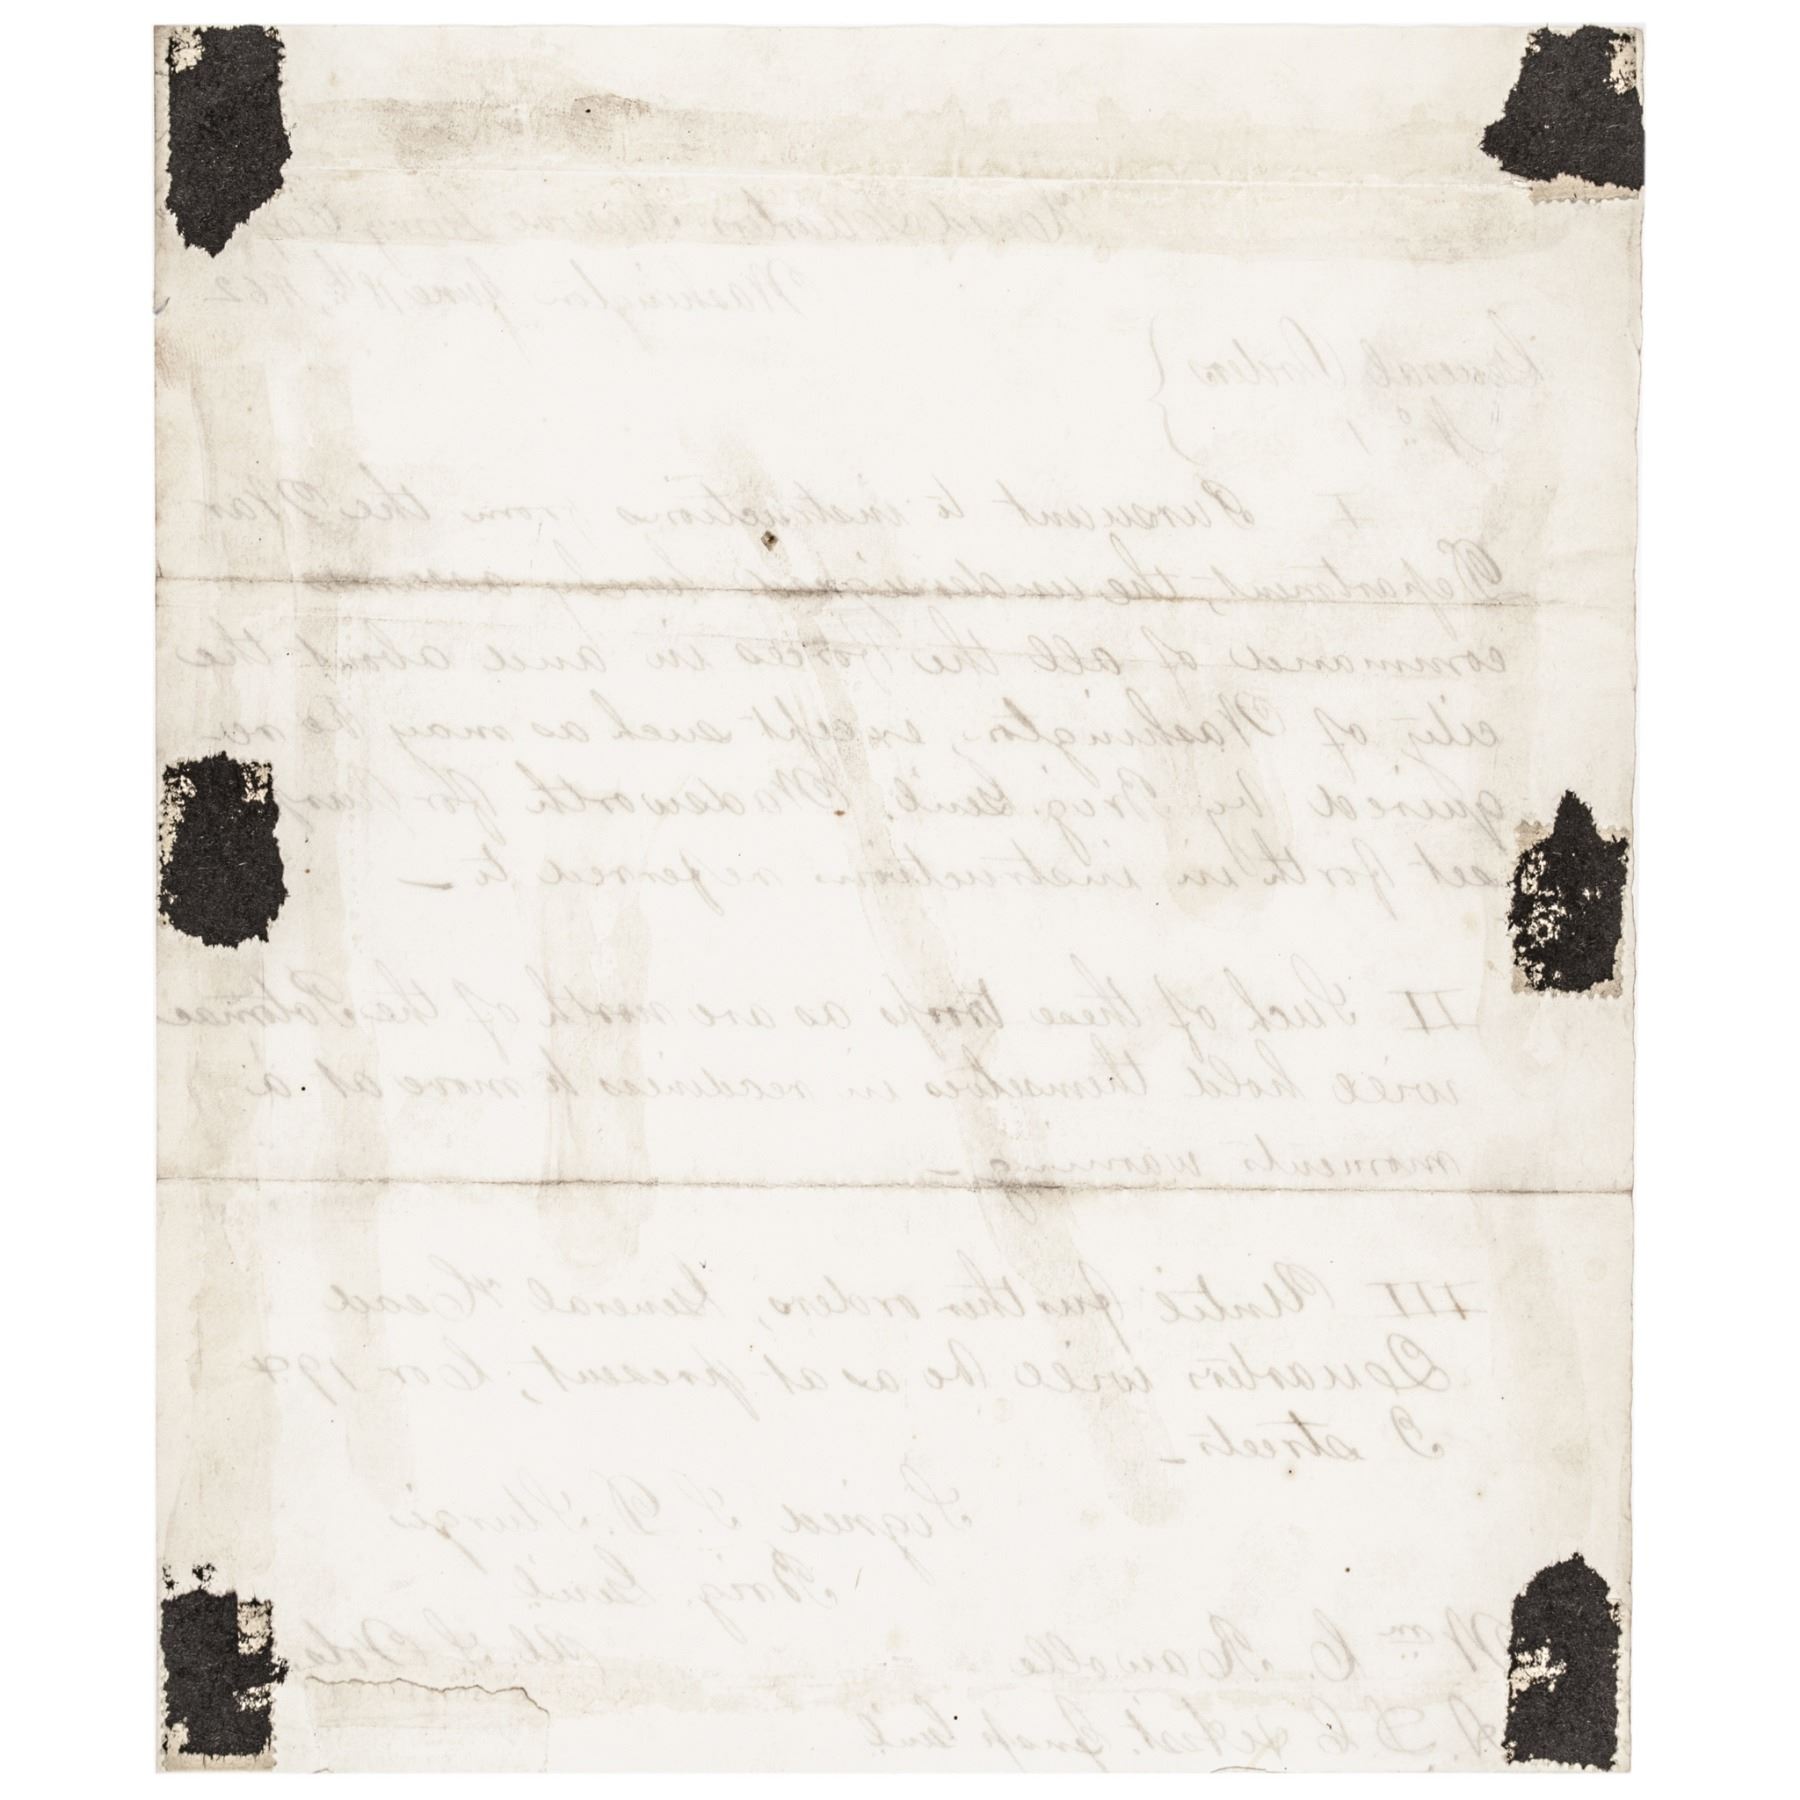 Head Quarters Reserve Army
Washington June 18th, 1862
General Orders
No 1
I Pursuant to instructions from the War
Department, the undersigned hereby assumes
command of all the Forces in and about the
city of Washington, except such as may be re-
quired by Brig. Genl. Wadsworth for
set forth in instructions referred to —
II Such of these troops as are north of the Potomac
will hold themselves in readiness to move at a
moments warning —
III Until further orders, General Head
Quarters will be as at present, Cor
I streets —
Signed S. D. Sturgis
Brig. Genl.
Wm C. Rawolle
A. D. C. & Asst.